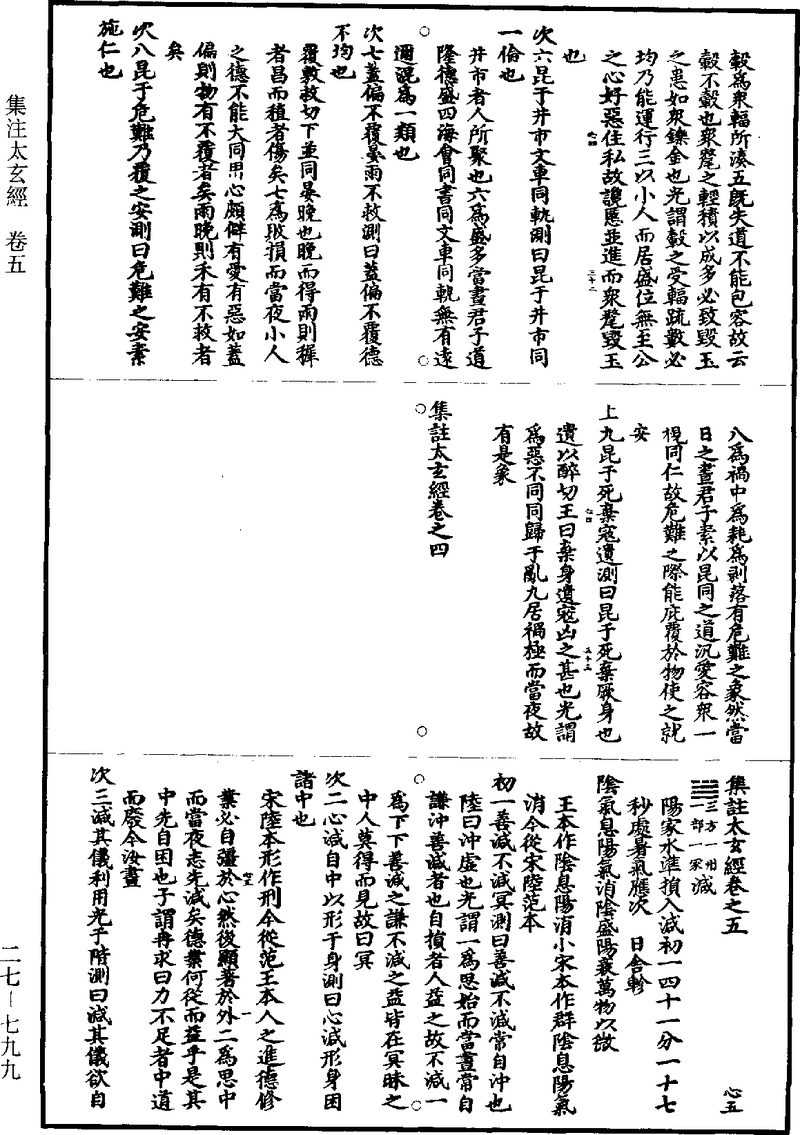 轂爲衆輻所湊五既失道不能包容故云
轂不轂也衆氂之輕積以成多必致毀玉
之患如衆鑠金也光謂轂之受輻疏數必
均乃能運行三以小人而居盛位無至公
之心好惡任私故讒慝並進而衆氂毀玉
也
次六昆于井市文車同軌測曰昆于井市同
一倫也
井市者人所聚也六爲盛多當晝君子道
隆德盛四海會同書同文車同軌無有遠
邇混爲一類也
次七蓋偏不覆晏雨不救測曰蓋偏不覆德
不均也
覆敷救切下並同晏晚也晚而得雨則穉
者昌而稙者傷矣七爲敗損而當夜小人
之德不能大同思心頗僻有愛有惡如蓋
偏則物有不覆者矣雨晚則禾有不救者
矣
次八昆于危難乃覆之安測曰危難之安素
施仁也
八爲禍中爲耗爲剥落有危難之象然當
日之晝君子素以昆同之道汎愛容衆一
視同仁故危難之際能庇覆於物使之就
安
上九昆于死棄寇遺測曰昆于死棄厥身也
遺以醉切王曰棄身遺寇凶之甚也光謂
爲惡不同同歸于亂九居禍極而當夜故
有是象
集註太玄經卷之四
集註太玄經卷之五
三方一州一部一家減
陽家水準損入減初一四十一分一十七
秒處暑氣應次 日舍軫
陰氣息陽氣消陰盛陽衰萬物以微
王本作陰息陽消小宋本作群陰息陽氣
消今從宋陸范本
初一善減不減冥測曰善減不減常自沖也
陸曰沖虛也光謂一爲思始而當晝常自
謙沖善減者也自損者人益之故不減一
爲下下善減之謙不減之益皆在冥昧之
中人莫得而見故曰冥
次二心減自中以形于身測曰心減形身困
諸中也
宋陸本形作刑今從范王本人之進德修
業必自彊於心然後顯著於外二爲思中
而當夜志先減矣德業何從而益乎是其
中先自困也子謂冉求曰力不足者中道
而廢今汝畫
次三減其儀利用光于階測曰減其儀欲自
集注太玄經 卷五
二七—七九九
心五